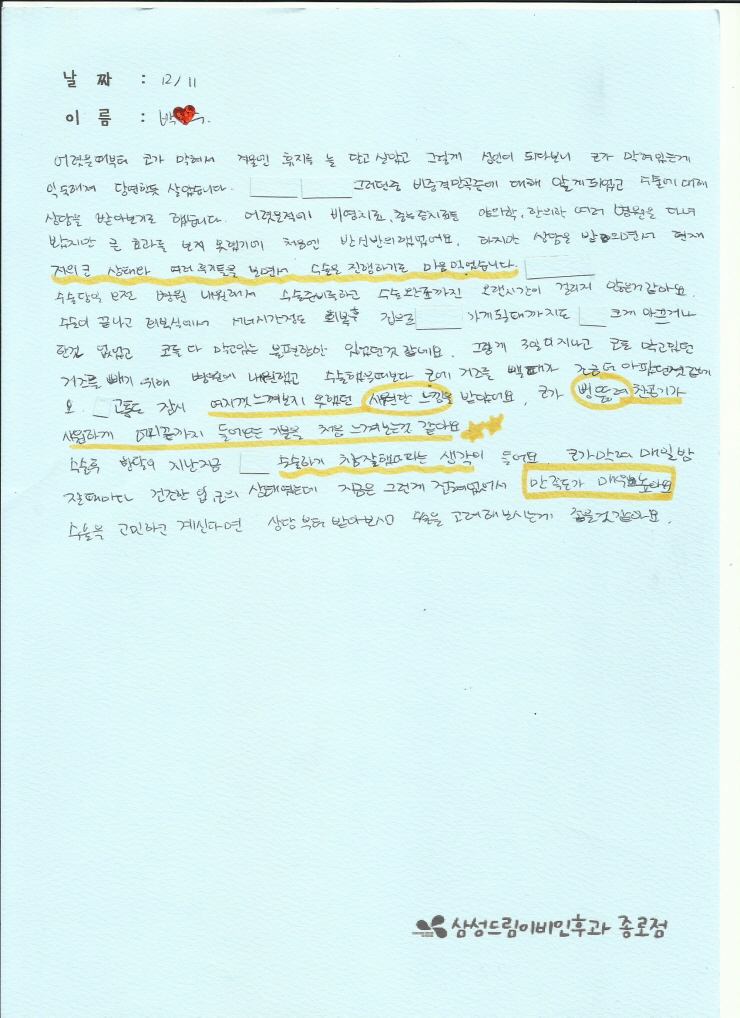 날 짜 : 12/11
이 름 : 박 수.
어렸을때부터 코가 막혀서 겨울엔 휴지를 늘 달고 살았고 그렇게 성인이 되다보니 코가 막혀있는게
익숙해져 당연한듯 살았습니다. 그러던중 비중격만곡증에 대해 알게되었고 수술에 대해
상담을 받아보기로 했습니다. 어렸을적에 비염치료, 축농증치료를 양의학, 한의학 여러 병원을 다녀
봤지만 큰 효과를 보지 못했기에 처음엔 반신반의했었어요. 하지만 상담을 받으면서 현재
저의 코 상태와 여러 측정들을 보면서 수술을 진행하기로 마음먹었습니다.
수술당일 오전 병원 내원해서 수술준비를하고 수술완료까진 오랜시간이 걸리지 않은거같아요.
수술이 끝나고 회복실에서 서너시간정도 회복후 집으로 가게되었을때까지도 크게 아프거나
한건 없었고 코를 다 막고있는 불편함만 있었던것 같네요. 그렇게 3일이지나고 코를 막고있던
거즈를 빼기 위해 병원에 내원했고 수술했을때보다 코에 거즈를 뺄때가 조금 더 아팠던것같네
요. 고통도 잠시 여지껏느껴보지 못했던 시원한 느낌을 받았어요. 코가 뻥 뚫려 찬공기가
시원하게 머리끝까지 들어오는 기분을 처음 느껴보는것 같아요
수술후 한달이 지난지금 수술하길 참잘했다라는 생각이 들어요. 코가막혀 매일밤
잘때마다 건조한 입 안의 상태였는데 지금은 그런게 전혀없어서 만족도가 매우높아요
수술을 고민하고 계신다면 상담부터 받아보시고 수술을 고려해보시는게 좋을것같아요.
삼성드림이비인후과 종로점